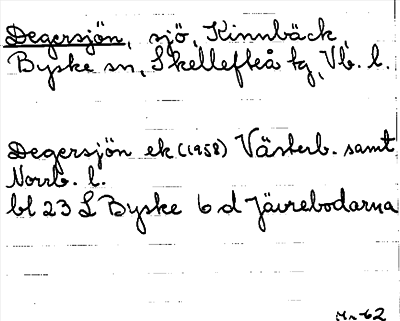 Degersjön, sjö, Kinnbäck,
Byske sn, Skellefteå tg, Vb. l.
Degersjön ek (1958) Västerb. samt
Norrb. l.
bl 23 L Byske 6 d Jävrebodarna